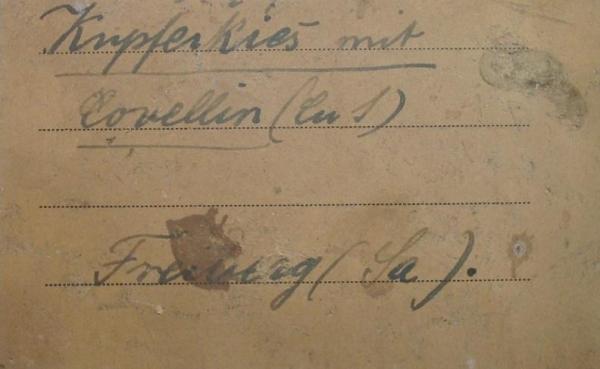 Kupferkies mit
Covellin (Cu S)
Freiberg (Sa).